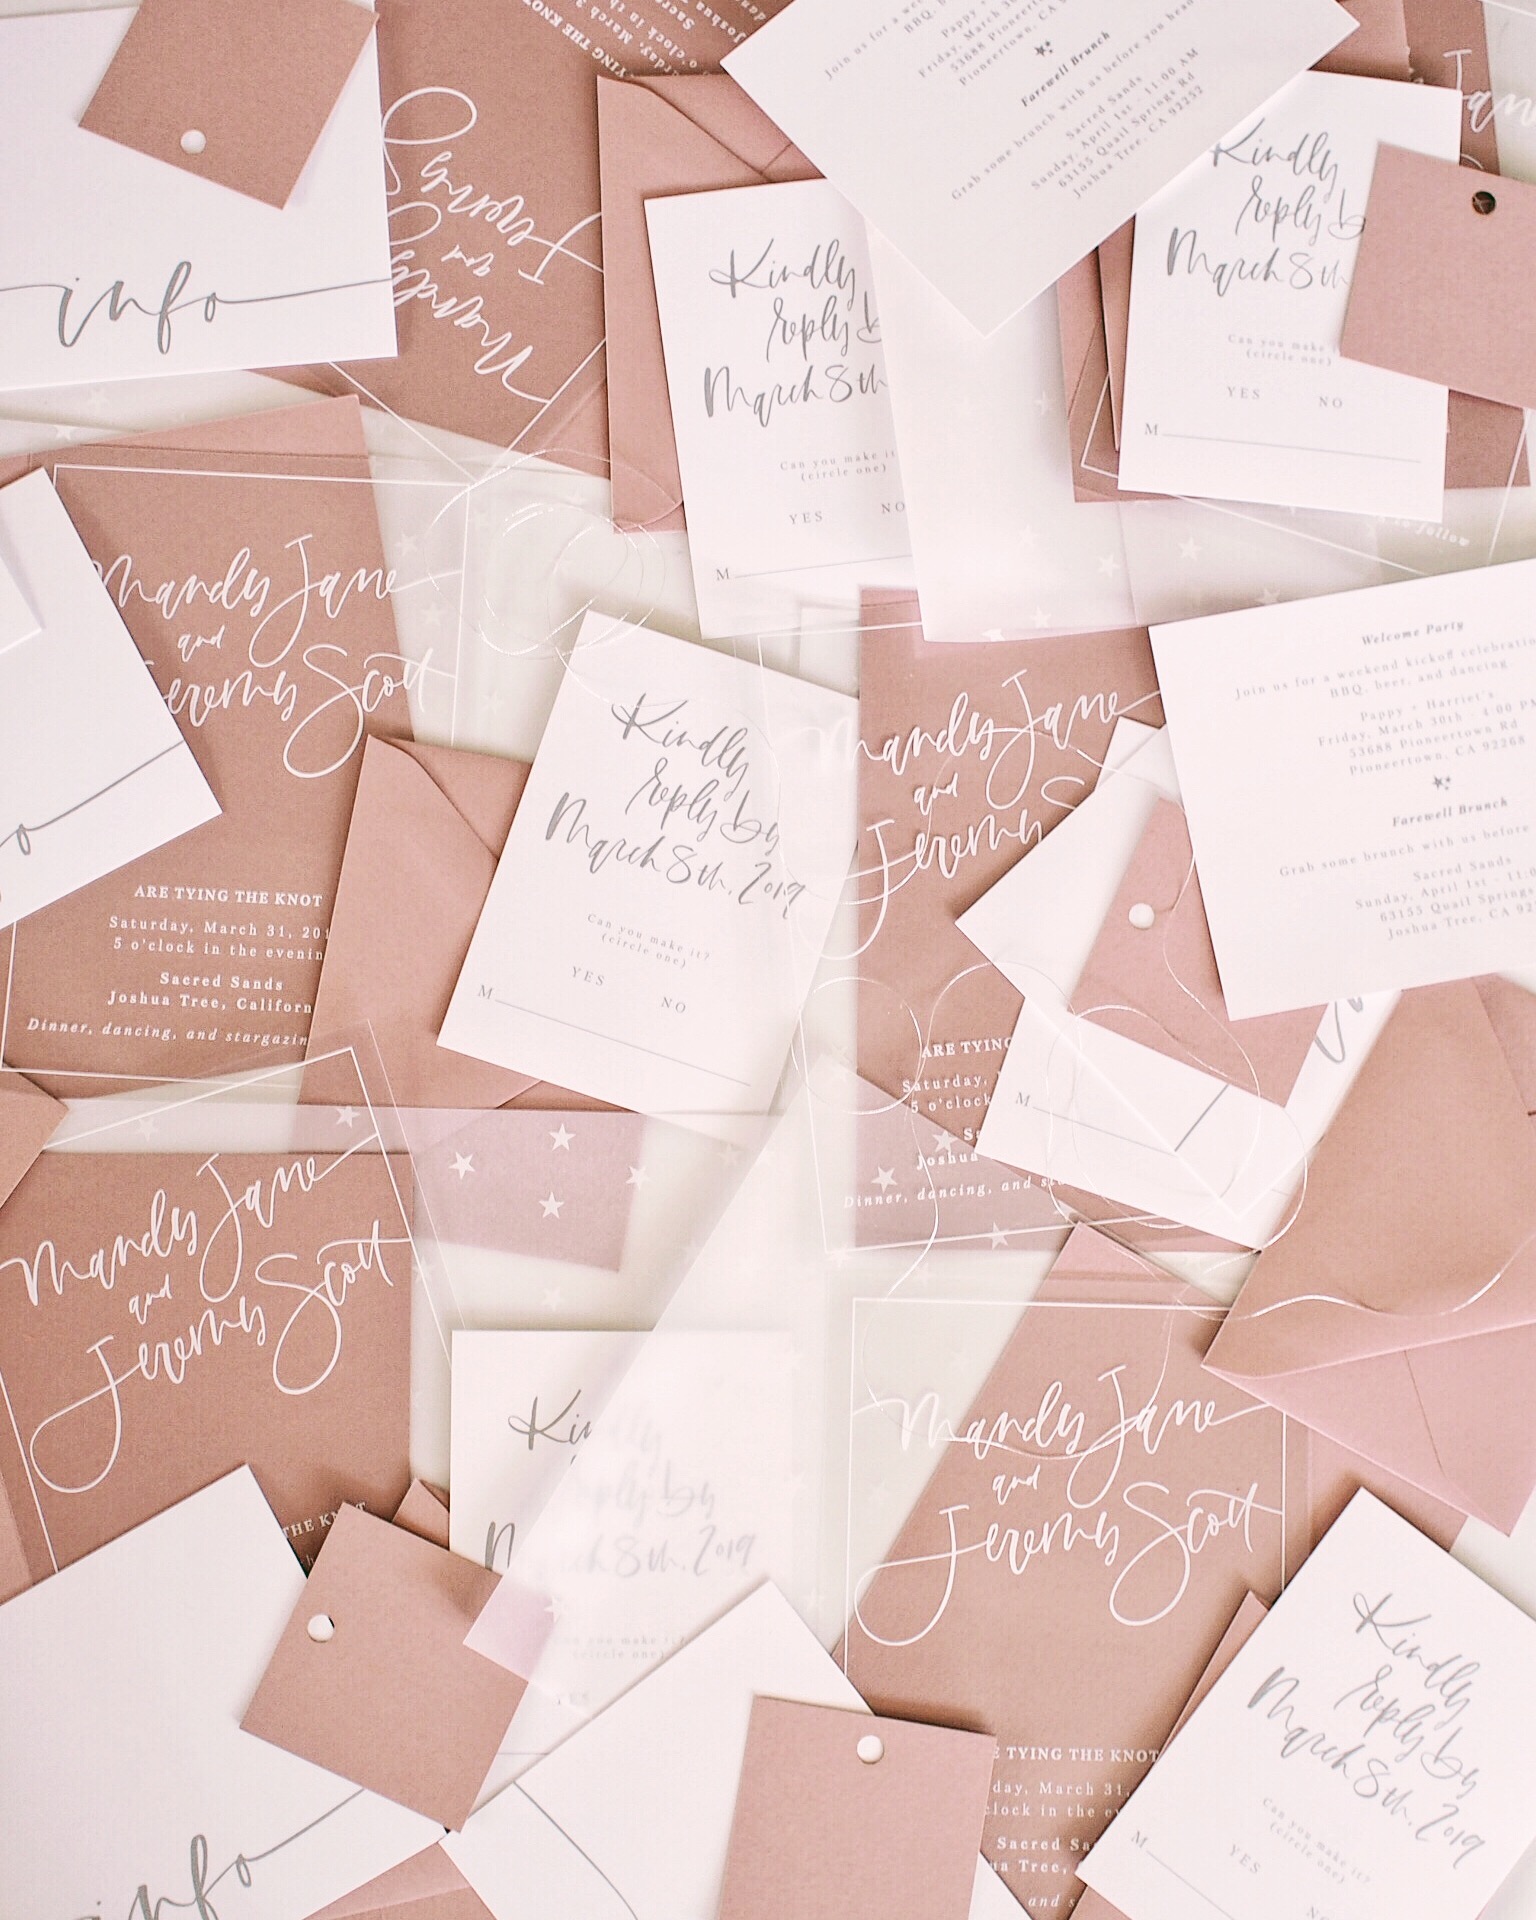 Join us for a we
BBQ, b
Pappy +
Friday, March 30
53688 Pioneertow
Pioneertown, CA 9
Farewell Brunch
Grab some brunch with us before you head
Sacred Sands
Sunday, April 1st - 11:00 AM
63155 Quail Springs Rd
Joshua Tree, CA 92252
TYING THE KNOT
info
Mandy
and
Jeremy S
Kindly
reply b
March 8th
Can you make it?
(circle one)
YES NO
M
Kindly
reply b
March 8th
Can you make i
(circle one)
YES NO
M
Jane
to follow
Mandy Jane
and
Jeremy Scott
ARE TYING THE KNOT
Saturday, March 31, 201
5 o'clock in the evenin
Sacred Sands
Joshua Tree, Californ
Dinner, dancing, and stargazin
Kindly
reply by
March 8th, 2019
Can you make it?
(circle one)
YES NO
M
Mandy Jane
and
Jeremy
ARE TYING
Saturday,
5 o'clock
Joshua
Dinner, dancing, and s
M
Welcome Party
Join us for a weekend kickoff celebration
BBQ, beer, and dancing.
Pappy + Harriet's
Friday, March 30th - 4:00 P
53688 Pioneertown Rd
Pioneertown, CA 92268
Farewell Brunch
Grab some brunch with us before
Sacred Sands
Sunday, April 1st - 11:0
63155 Quail Springs
Joshua Tree, CA 92
Mandy Jane
and
Jeremy Scott
THE KNOT
Ki
reply by
March 8th, 2019
Can you make it?
(circle one)
YES
Mandy Jane
and
Jeremy Scott
E TYING THE KNOT
day, March 31,
clock in the ev
Sacred Sa
ua Tree, C
and s
Kindly
reply by
March 8th, 2019
Can you make it?
(circle one)
YES NO
M
info